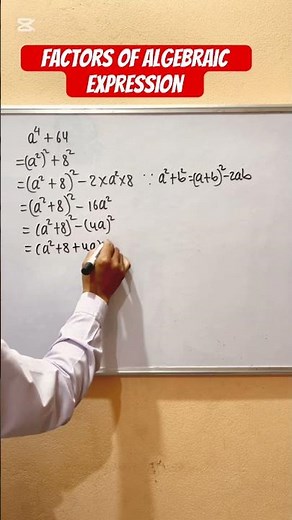 CapCut
FACTORS OF ALGEBRAIC
EXPRESSION
a⁴ + 64
=(a²)² + 8²
=(a² + 8)² - 2×a²×8 ∵ a²+b²=(a+b)²-2ab
=(a²+8)² - 16a²
= (a²+8)² - (4a)²
= (a²+8+4a)